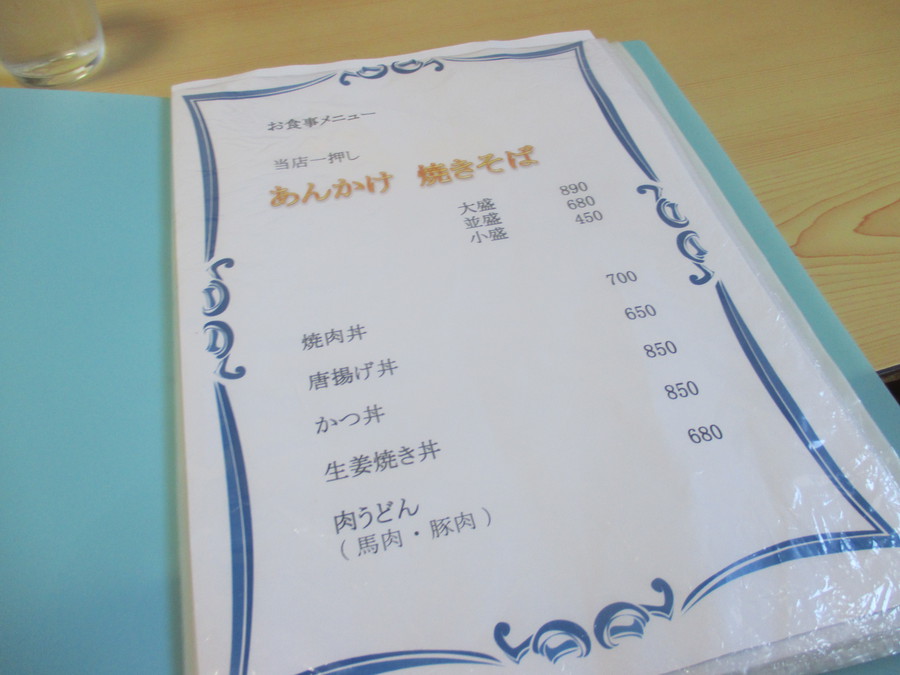 お食事メニュー
当店一押し
あんかけ 焼きそば
大盛 890
並盛 680
小盛 450
焼肉丼 700
唐揚げ丼 650
かつ丼 850
生姜焼き丼 850
肉うどん 680
(馬肉・豚肉)